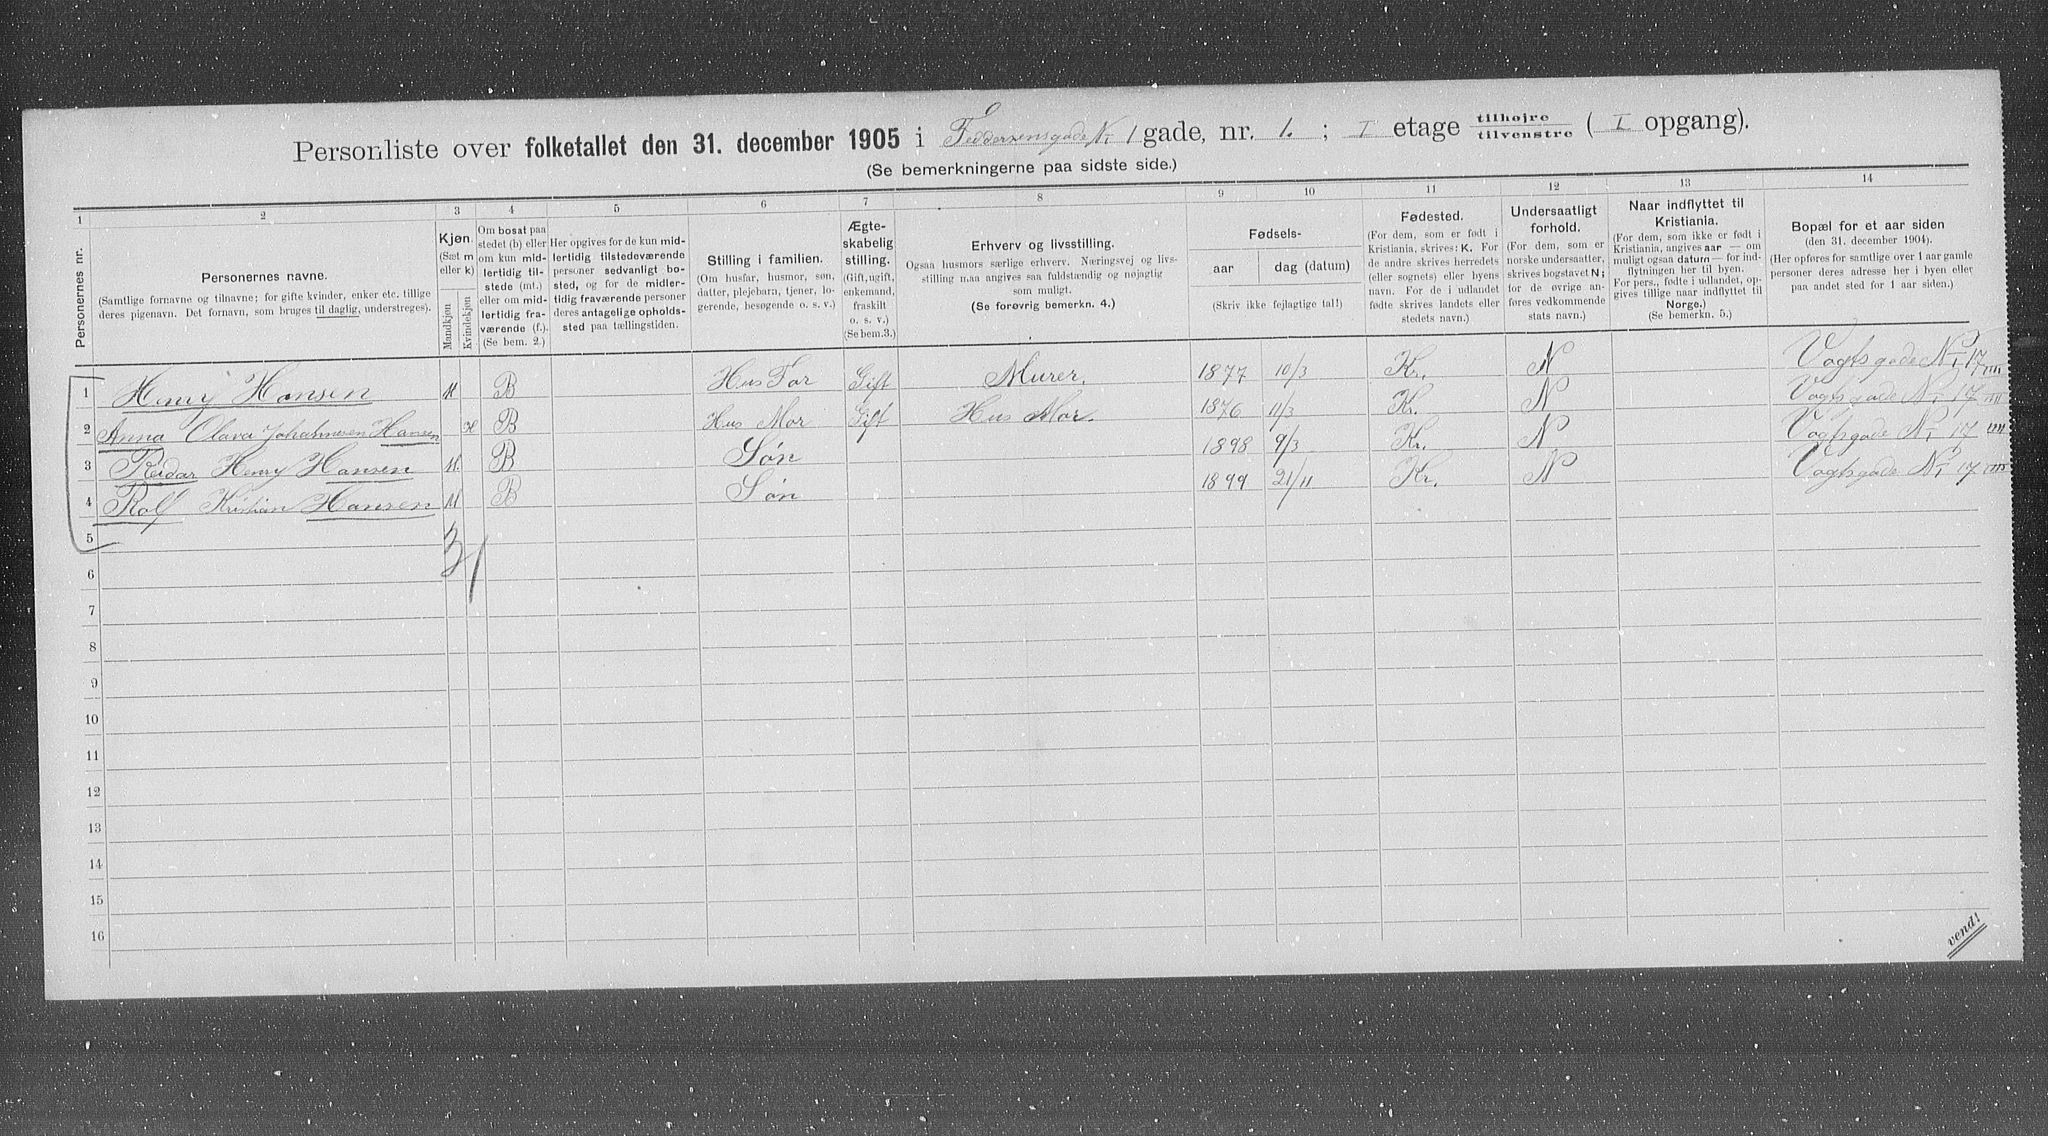 Personliste over folketallet den 31. december 1905 i Feddersensgade No 1 gade, nr. 1. ; I etage tilhøjre tilvenstre ( I opgang).
(Se bemerkningerne paa sidste side.)
1 2 3 4 5 6 7 8 9 10 11 12 13 14
Personernes nr.
Personernes navne.
(Samtlige fornavne og tilnavne; for gifte kvinder, enker etc. tillige
deres pigenavn. Det fornavn, som bruges til daglig, understreges).
Kjøn.
(Sæt m
eller k)
Mandkjøn
Kvindekjøn
Om bosat paa
stedet (b) eller
om kun mid-
lertidig til-
stede (mt.)
eller om mid-
lertidig fra-
værende (f.).
(Se bem. 2.)
Her opgives for de kun mid-
lertidig tilstedeværende
personer sedvanligt bo-
sted, og for de midler-
tidig fraværende personer
deres antagelige opholds-
sted paa tællingstiden.
Stilling i familien.
(Om husfar, husmor, søn,
datter, plejebarn, tjener, lo-
gerende, besøgende o. s. v.)
Ægte-
skabelig
stilling.
(Gift, ugift,
enkemand,
fraskilt
o. s. v.)
(Se bem.3.)
Erhverv og livsstilling.
Ogsaa husmors særlige erhverv. Næringsvej og livs-
stilling maa angives saa fuldstændig og nøjagtig
som muligt.
(Se forøvrig bemerkn. 4.)
Fødsels-
aar dag (datum)
(Skriv ikke fejlagtige tal!)
Fødested.
(For dem, som er født i
Kristiania, skrives: K. For
de andre skrives herredets
(eller sognets) eller byens
navn. For de i udlandet
fødte skrives landets eller
stedets navn.)
Undersaatligt
forhold.
(For dem, som er
norske undersaatter,
skrives bogstavet N;
for de øvrige an-
føres vedkommende
stats navn.)
Naar indflyttet til
Kristiania.
(For dem, som ikke er født i
Kristiania, angives aar — om
muligt ogsaa datum — for ind-
flytningen her til byen.
For pers., fødte i udlandet, op-
gives tillige naar indflyttet til
Norge.)
(Se bemerkn. 5.)
Bopæl for et aar siden
(den 31. december 1904).
(Her opføres for samtlige over 1 aar gamle
personer deres adresse her i byen eller
paa andet sted for 1 aar siden.)
1 Henry Hansen M B Hus Far Gift Murer. 1877 10/3 Kr. N Vogtsgade No 17 IIII
2 Anna Olava Johannesen Hansen K B Hus Mor Gift Hus Mor. 1876 11/3 Kr. N Vogtsgade No 17 IIII
3 Reidar Henry Hansen M. B Søn 1898 9/3 Kr. N Vogtsgade No 17 IIII
4 Rolf Kristian Hansen M B Søn 1899 21/11 Kr. N Vogtsgade No 17 IIII
5 3 1
6
7
8
9
10
11
12
13
14
15
16
vend!